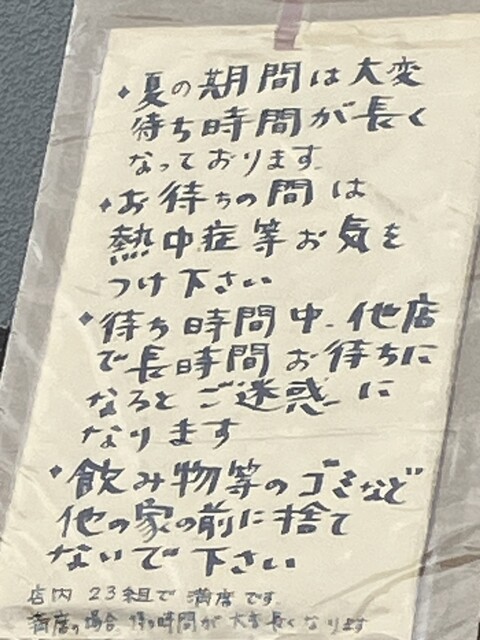 ・夏の期間は大変
待ち時間が長く
なっております.
・お待ちの間は
熱中症等お気を
つけ下さい
・待ち時間中、他店
で長時間お待ちに
なるとご迷惑に
なります
・飲み物等のゴミなど
他の家の前に捨て
ないで下さい
店内 23組で満席です.
満席の場合、待ち時間が大変長くなります